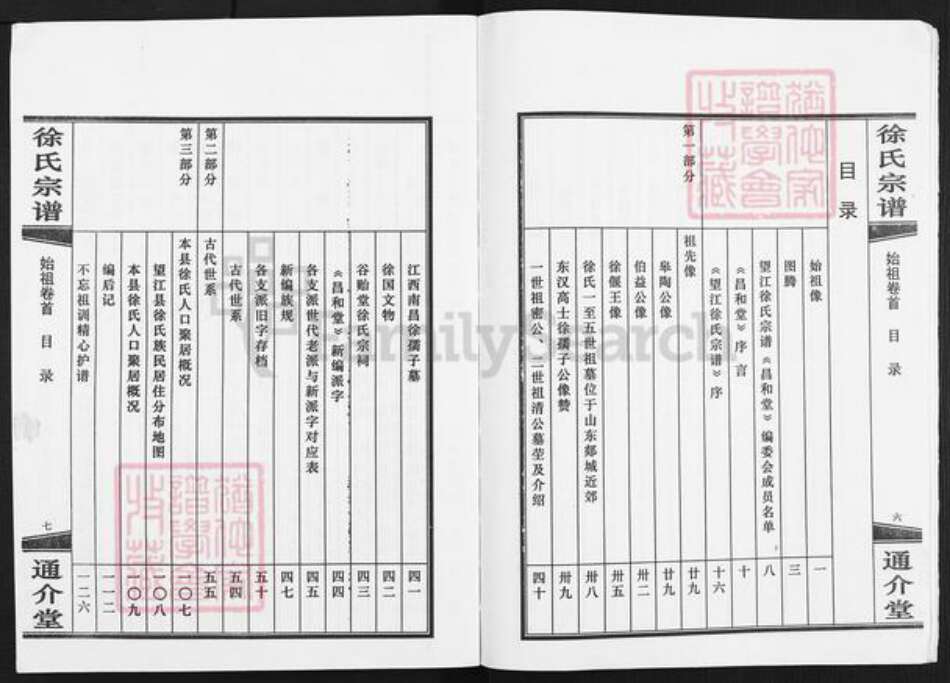 徐氏宗谱
始祖卷首 目录
六
通介堂
目录
始祖像 一
图腾 三
望江徐氏宗谱《昌和堂》编委会成员名单 八
《昌和堂》序言 十
《望江徐氏宗谱》序 十六
第一部分 祖先像 廿九
皋陶公像 廿九
伯益公像 卅二
徐偃王像 卅五
徐氏一至五世祖墓位于山东郯城近郊 卅八
东汉高士徐孺子公像赞 卅九
一世祖密公二世祖清公墓茔及介绍 四十
江西南昌徐孺子墓 四一
徐国文物 四二
谷贻堂徐氏宗祠 四三
《昌和堂》新编派字 四四
各支派世代老派与新派字对应表 四五
新编族规 四七
各支派旧字存档 五十
古代世系 五四
第二部分 古代世系 五五
第三部分 本县徐氏人口聚居概况 一〇七
望江县徐氏族民居住分布地图 一〇八
本县徐氏人口聚居概况 一〇九
编后记 一一二
不忘祖训精心护谱 一二六
徐氏宗谱
始祖卷首 目录
七
通介堂
FamilySearch